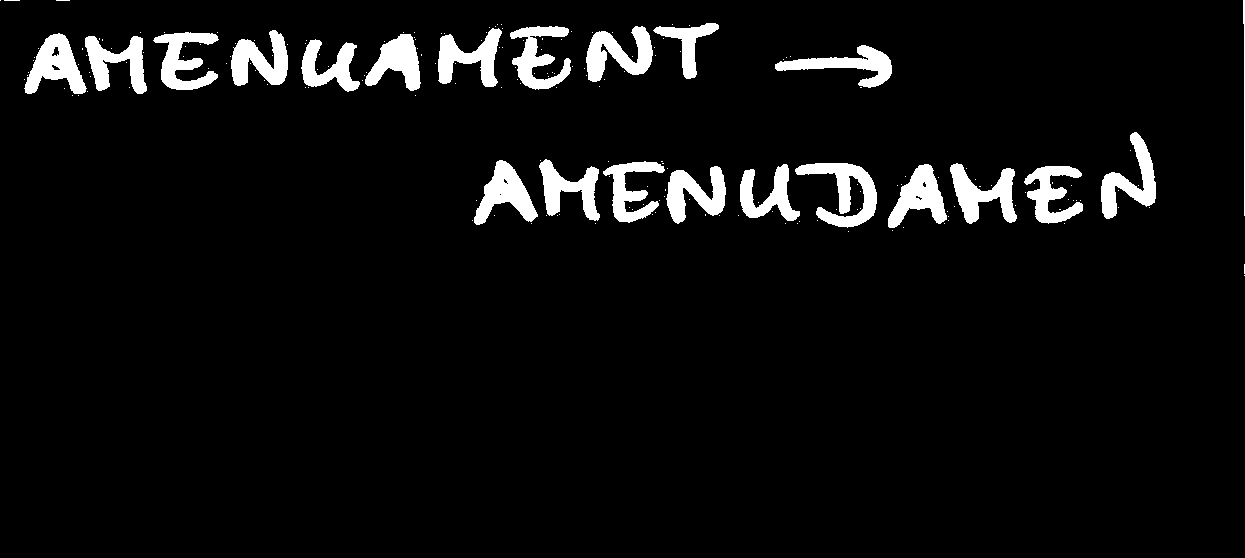 AMENUAMENT →
AMENUDAMEN